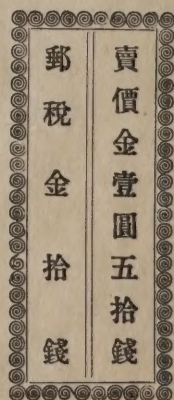 賣價金壹圓五拾錢
郵稅金拾錢